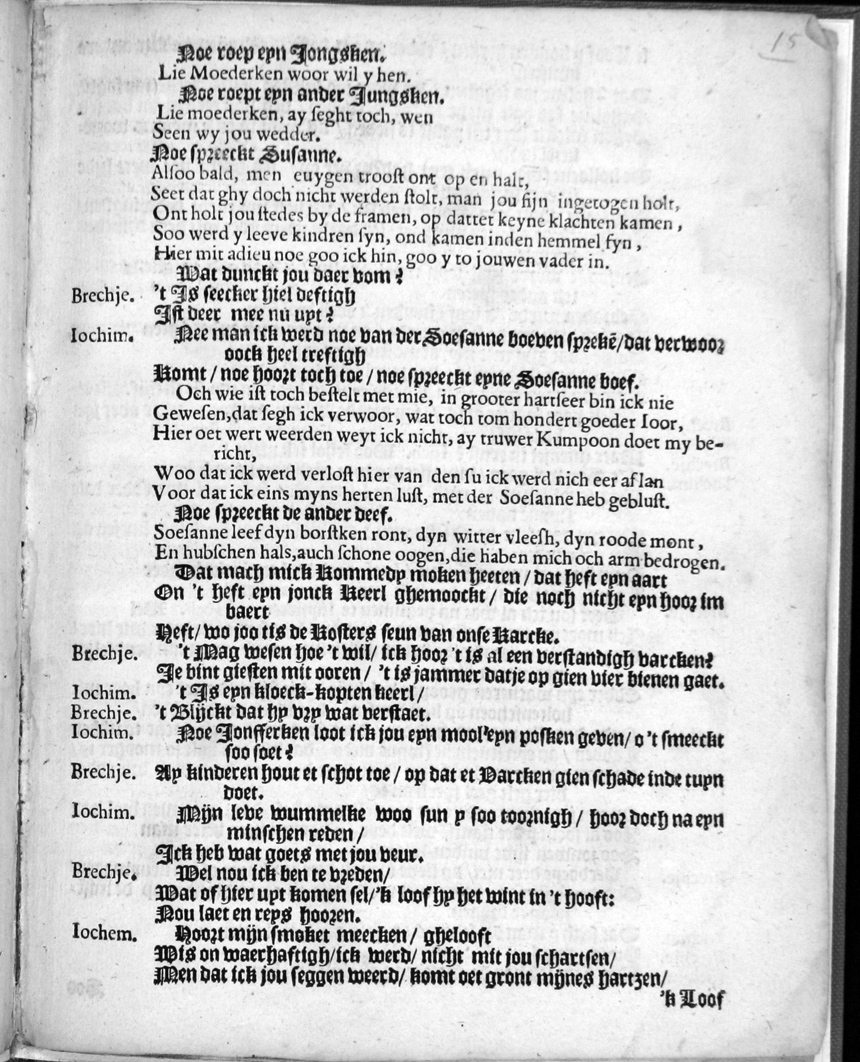 15
Noe roep eyn Jongsken.
Lie Moederken woor wil y hen.
Noe roept eyn ander Jungsken.
Lie moederken, ay seght toch, wen
Seen wy jou wedder.
Noe spreeckt Susanne.
Alsoo bald, men euygen troost ont op en halt,
Seet dat ghy doch nicht werden stolt, man jou sijn ingetogen holt,
Ont holt jou stedes by de framen, op dattet keyne klachten kamen,
Soo werd y leeve kindren syn, ond kamen inden hemmel fyn,
Hier mit adieu noe goo ick hin, goo y to jouwen vader in.
Wat dunckt jou daer vom?
Brechje. 't Is seecker hiel deftigh
Ist deer mee nu uyt?
Iochim. Nee man ick werd noe van der Soesanne boeven sprekē/dat verwoor
oock heel treftigh
Komt/ noe hoort toch toe/ noe spreeckt eyne Soesanne boef.
Och wie ist toch bestelt met mie, in grooter hartseer bin ick nie
Gewesen,dat segh ick verwoor, wat toch tom hondert goeder Ioor,
Hier oet wert weerden weyt ick nicht, ay truwer Kumpoon doet my be-
richt,
Woo dat ick werd verlost hier van den su ick werd nich eer aflan
Voor dat ick eins myns herten lust, met der Soesanne heb geblust.
Noe spreeckt de ander deef.
Soesanne leef dyn borstken ront, dyn witter vleesh, dyn roode mont,
En hubschen hals,auch schone oogen,die haben mich och arm bedrogen.
Dat mach mick Kommedy moken heeten/ dat heft eyn aart
On 't heft eyn jonck Keerl ghemoockt/ die noch nicht eyn hoor im
baert
Heft/ wo joo tis de Kosters seun van onse Karcke.
Brechje. 't Mag wesen hoe 't wil/ ick hoor 't is al een verstandigh varcken?
Je bint giesten mit ooren/ 't is jammer datje op gien vier bienen gaet.
Iochim. 't Is eyn kloeck-kopten keerl/
Brechje. 't Blijckt dat hy vry wat verstaet.
Iochim. Noe Jonfferken loot ick jou eyn mool eyn posken geven/ o 't smeeckt
soo soet?
Brechje. Ay kinderen hout et schot toe/ op dat et Varcken gien schade inde tuyn
doet.
Iochim. Mijn leve wummelke woo sun y soo toornigh/ hoor doch na eyn
minschen reden/
Ick heb wat goets met jou veur.
Brechje. Wel nou ick ben te vreden/
Wat of hier uyt komen sel/'k loof hy het wint in 't hooft:
Nou laet en reys hooren.
Iochem. Hoort mijn smoket meecken/ ghelooft
Wis on waerhaftigh/ick werd/ nicht mit jou schartsen/
Men dat ick jou seggen weerd/ komt oet gront mijnes hartzen/
'k Loof